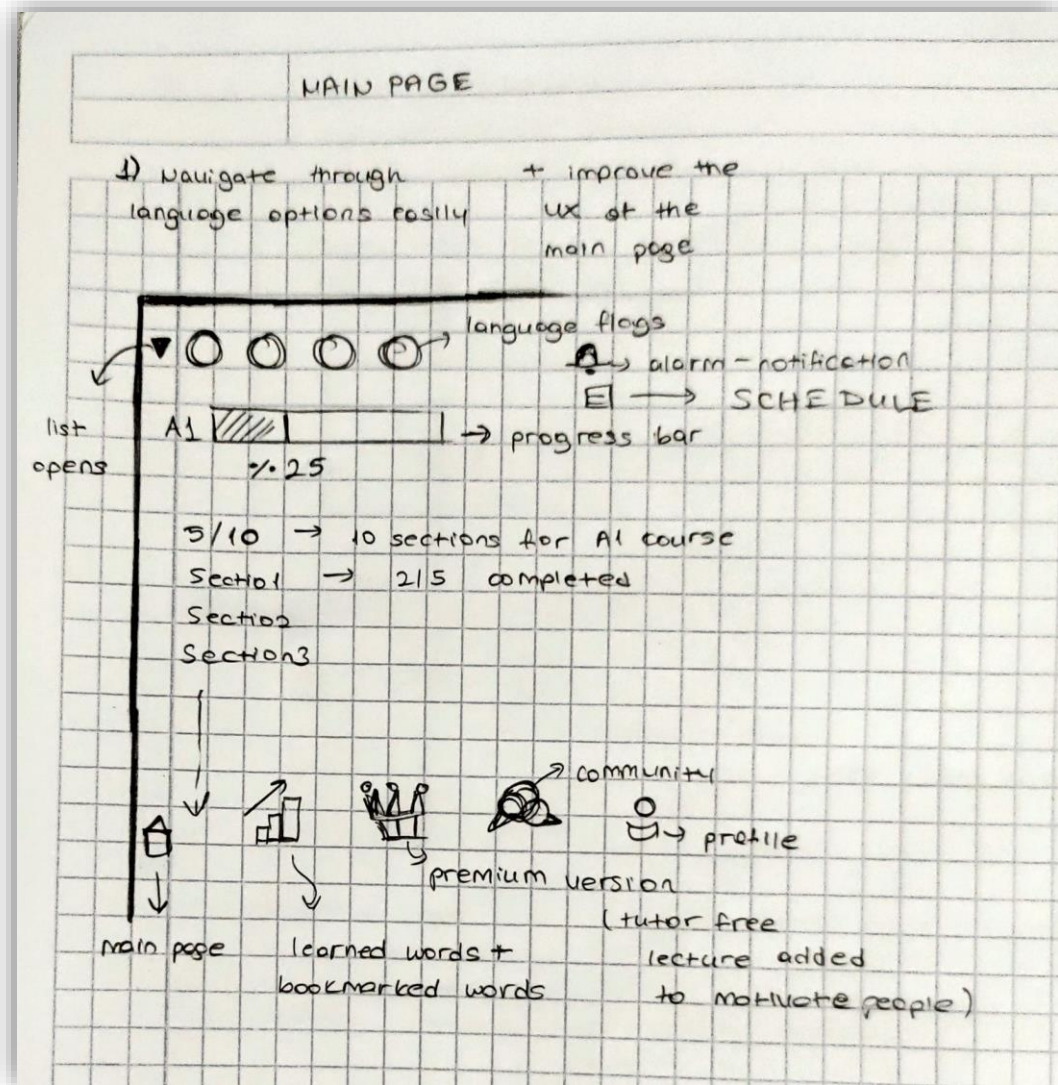 MAIN PAGE
1) Navigate through
language options easily
+ improve the
ux of the
main page
language flags
alarm-notification
SCHEDULE
list
opens
A1
progress bar
%25
5/10 → 10 sections for A1 course
Sectio1 → 2/5 completed
Sectio2
Section3
community
profile
premium version
(tutor free
lecture added
to motivate people)
main page
learned words +
bookmarked words